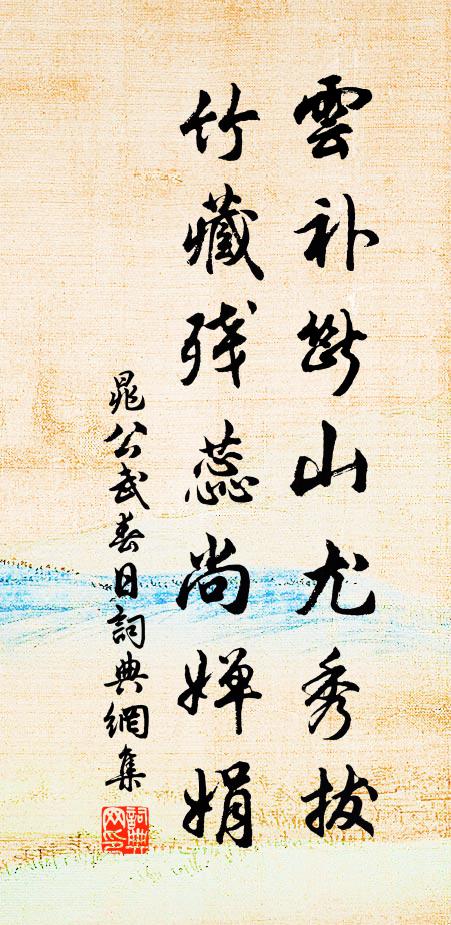 雲补断山尤秀拔
竹藏残蕊尚婵娟
晁公武春日詞典網集
詞典網印